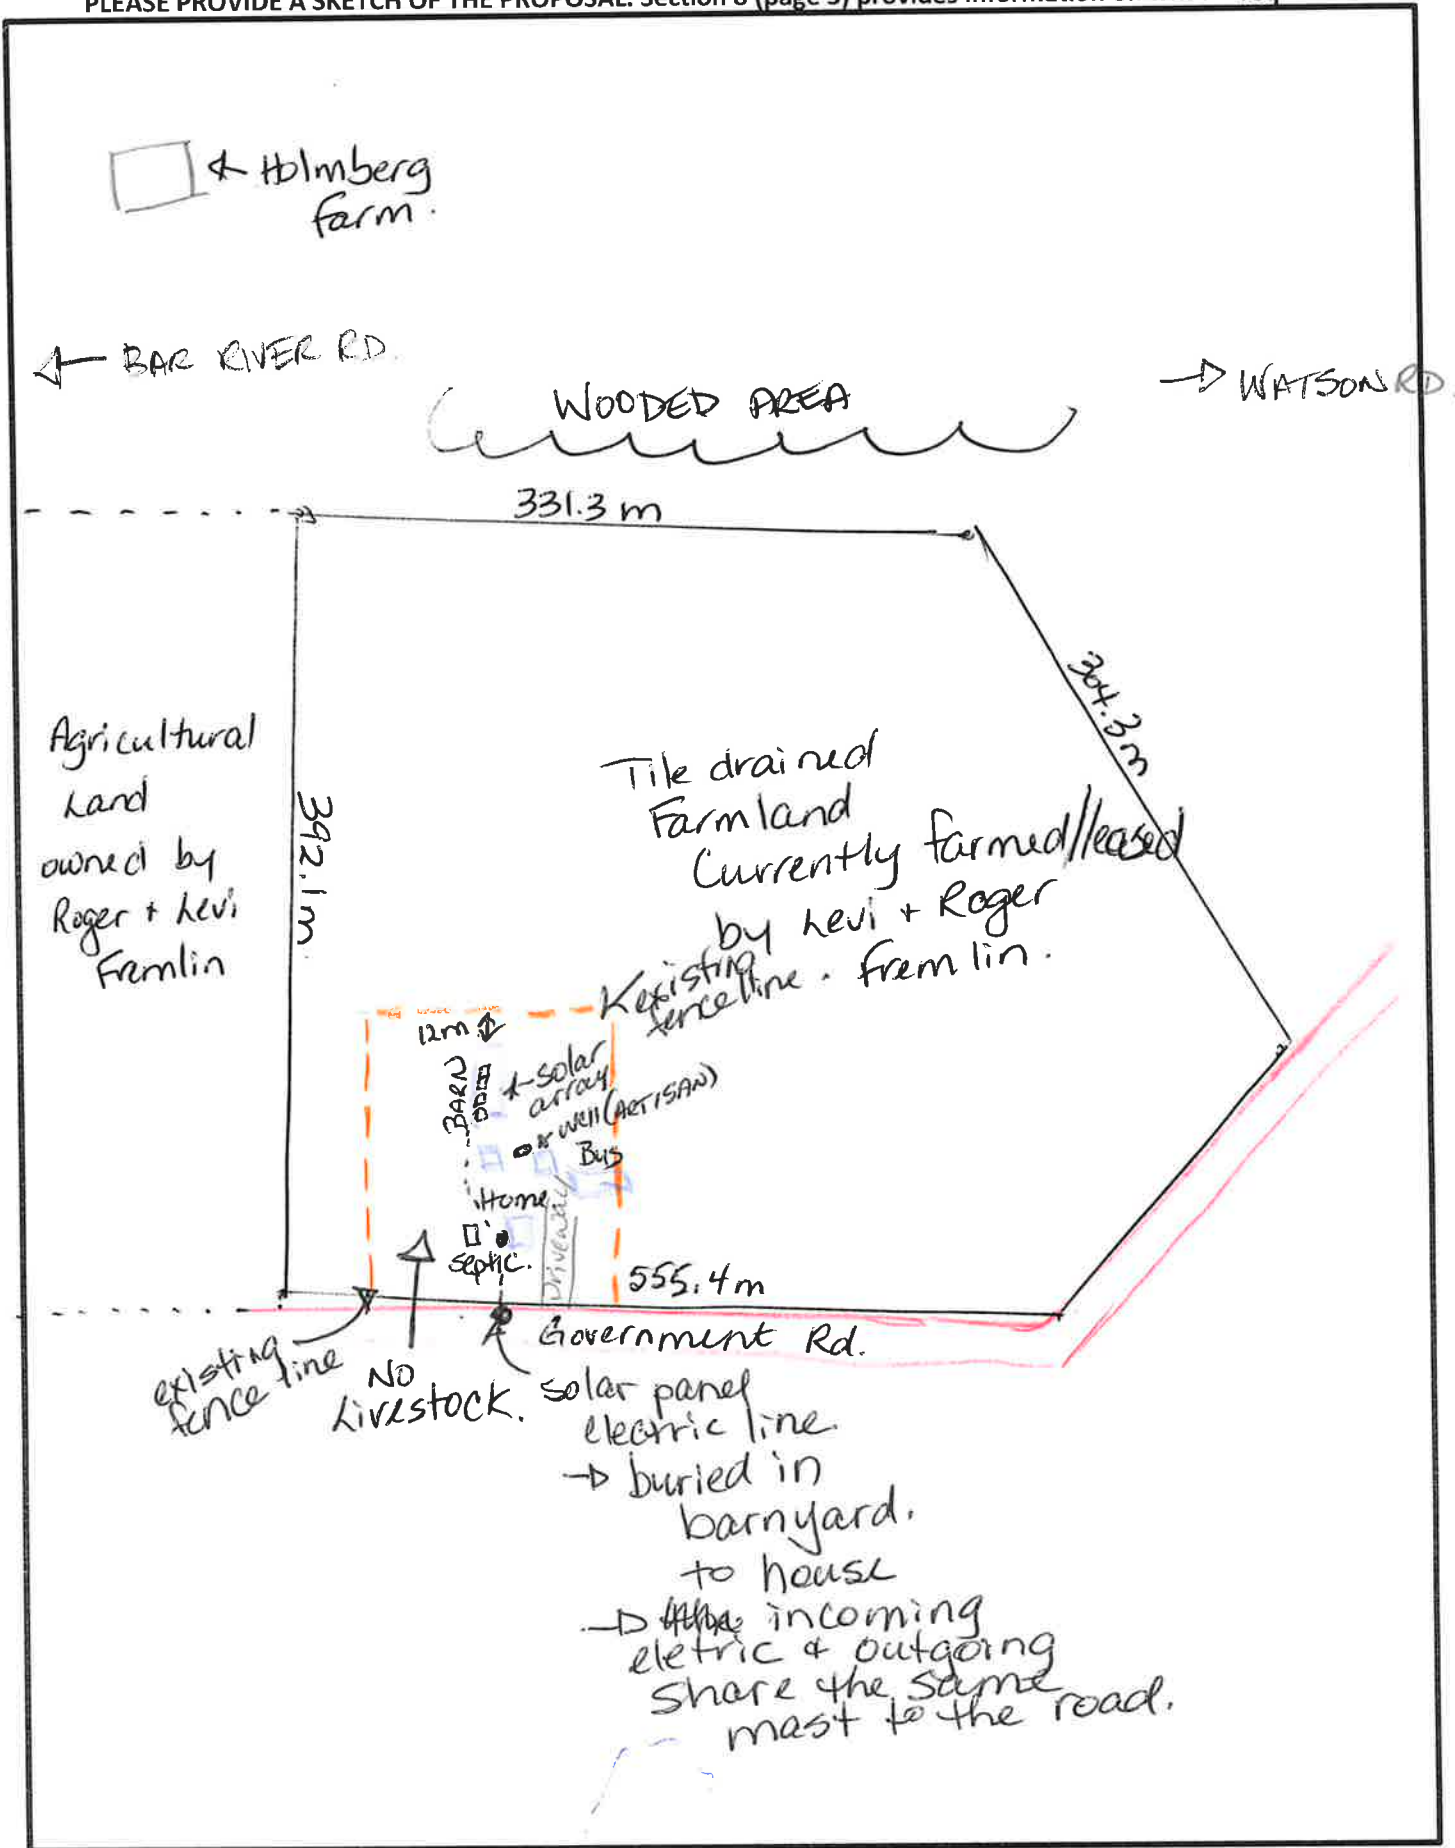 PLEASE PROVIDE A SKETCH OF THE PROPOSAL. Section 8 (page 3) provides information
Holmberg
farm.
BAR RIVER RD.
WATSON RD.
WOODED AREA
331.3 m
304.3 m
392.1 m
Agricultural
Land
owned by
Roger + Levi
Fremlin
Tile drained
Farmland
Currently farmed/leased
by Levi + Roger
fremlin.
existing
fence line.
12m
BARN
solar
array
well (ARTISAN)
Bus
Home
Driveway
septic.
555.4 m
Government Rd.
existing
fence line
NO
Livestock.
solar panel
electric line.
buried in
barnyard.
to house
incoming
eletric & outgoing
share the same
mast to the road.